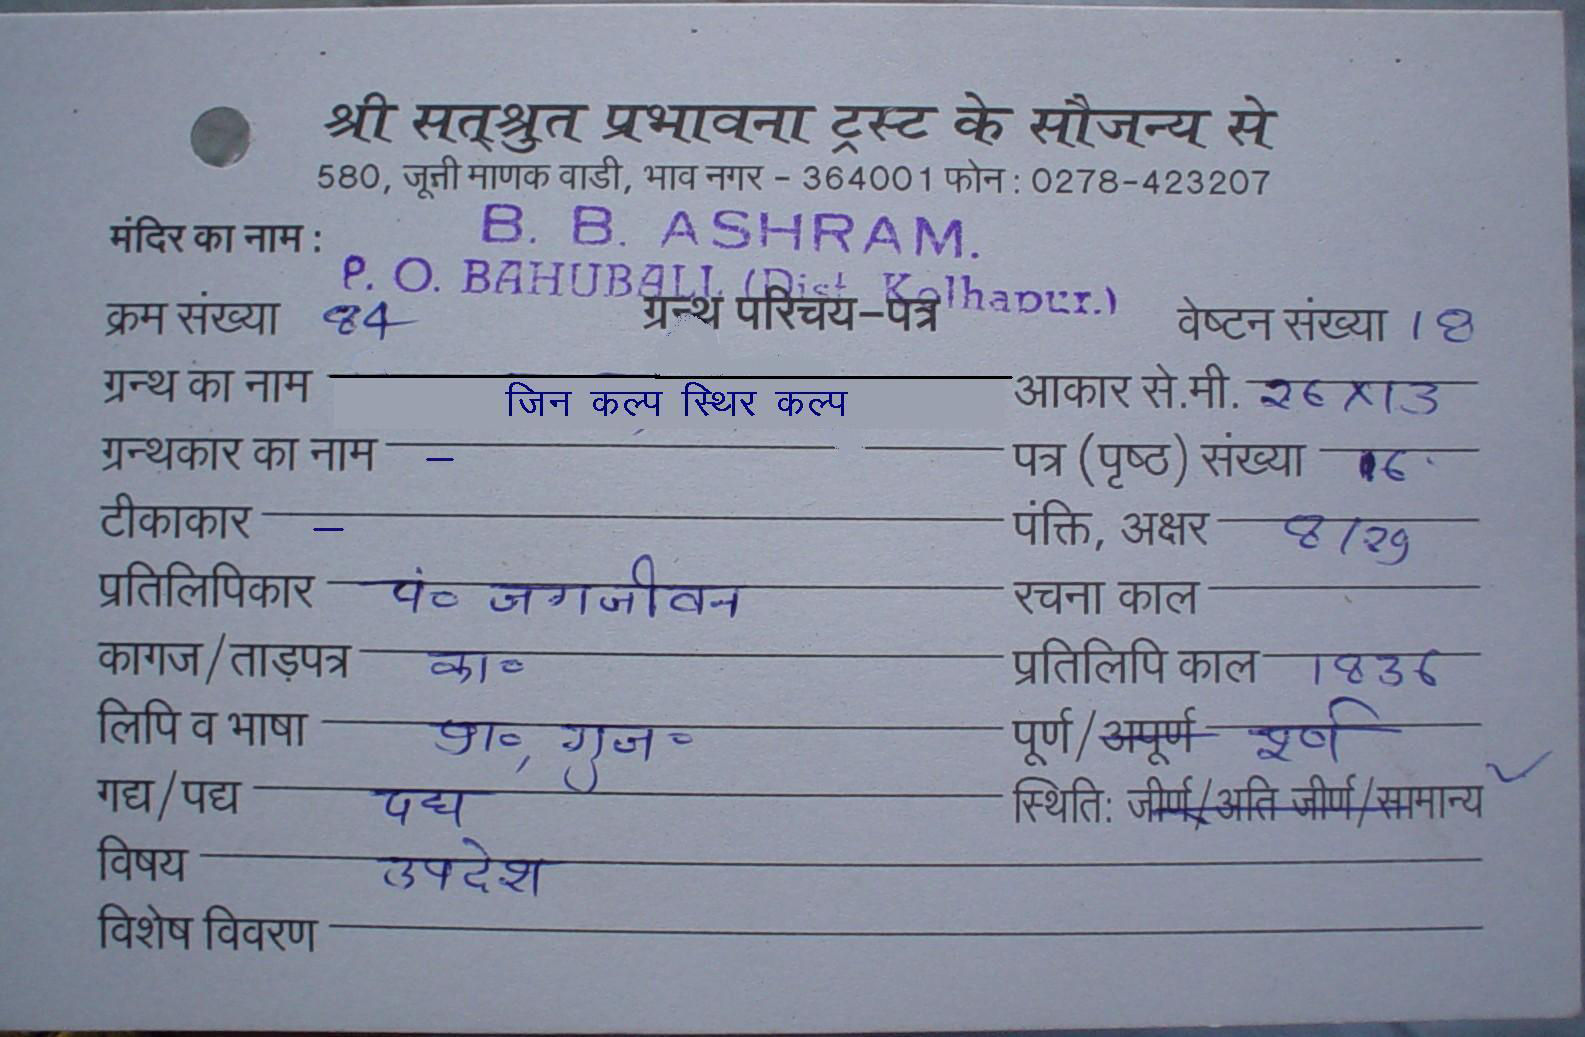 श्री सत्श्रुत प्रभावना ट्रस्ट के सौजन्य से
580, जूनी माणक वाडी, भाव नगर - 364001 फोन : 0278-423207
मंदिर का नाम : B. B. ASHRAM.
P. O. BAHUBALI. (Dist. Kolhapur.)
क्रम संख्या 84 ग्रन्थ परिचय-पत्र वेष्टन संख्या 18
ग्रन्थ का नाम जिन कल्प स्थिर कल्प आकार से.मी. २६ X 13
ग्रन्थकार का नाम – पत्र (पृष्ठ) संख्या 16
टीकाकार – पंक्ति, अक्षर 8/29
प्रतिलिपिकार पं० जगजीवन रचना काल
कागज/ताड़पत्र का० प्रतिलिपि काल 1836
लिपि व भाषा प्रा०, गुज० पूर्ण/अपूर्ण पूर्ण
गद्य/पद्य पद्य स्थिति: जीर्ण/अति जीर्ण/सामान्य ✓
विषय उपदेश
विशेष विवरण